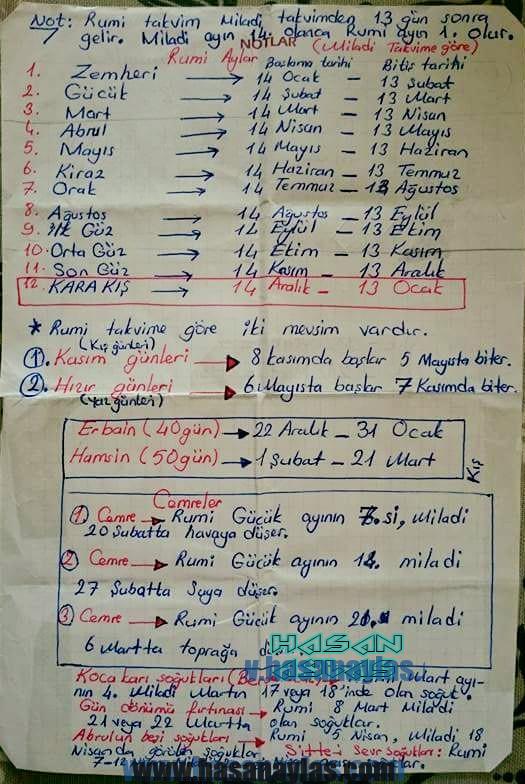 Not: Rumi takvim Miladi takvimden 13 gün sonra
gelir. Miladi ayın 14. olunca Rumi ayın 1. olur.
NOTLAR (Miladi Takvime göre)
Rumi Aylar Başlama tarihi Bitiş tarihi
1. Zemheri → 14 Ocak - 13 Şubat
2. Gücük → 14 Şubat - 13 Mart
3. Mart → 14 Mart - 13 Nisan
4. Abrul → 14 Nisan - 13 Mayıs
5. Mayıs → 14 Mayıs - 13 Haziran
6. Kiraz → 14 Haziran - 13 Temmuz
7. Orak → 14 Temmuz - 13 Ağustos
8. Ağustos → 14 Ağustos - 13 Eylül
9. İlk Güz → 14 Eylül - 13 Ekim
10. Orta Güz → 14 Ekim - 13 Kasım
11. Son Güz → 14 Kasım - 13 Aralık
12. KARA KIŞ → 14 Aralık - 13 Ocak
* Rumi takvime göre iki mevsim vardır.
(Kış günleri)
1. Kasım günleri → 8 kasımda başlar 5 Mayısta biter.
2. Hızır günleri → 6 Mayısta başlar 7 Kasımda biter.
(Yaz günleri)
Erbain (40 gün) → 22 Aralık - 31 Ocak
Hamsin (50 gün) → 1 Şubat - 21 Mart
Kış
Cemreler
1 Cemre → Rumi Gücük ayının 7.si, Miladi
20 Şubatta havaya düşer.
2 Cemre → Rumi Gücük ayının 14. miladi
27 Şubatta Suya düşer.
3 Cemre → Rumi Gücük ayının 21. miladi
6 Martta toprağa
HASAN
Koca karı soğukları Mart ayı-
nın 4. Miladi Martın 17 veya 18'inde olan soğuk.
Gün dönümü fırtınası → Rumi 8 Mart Miladi
21 veya 22 Martta olan soğuklar.
Abrulun beşi soğukları → Rumi 5 Nisan, Miladi 18
Nisanda görülen soğuklar. Sitte-i Sevr soğukları: Rumi
7-12
www.hasanaylas.com